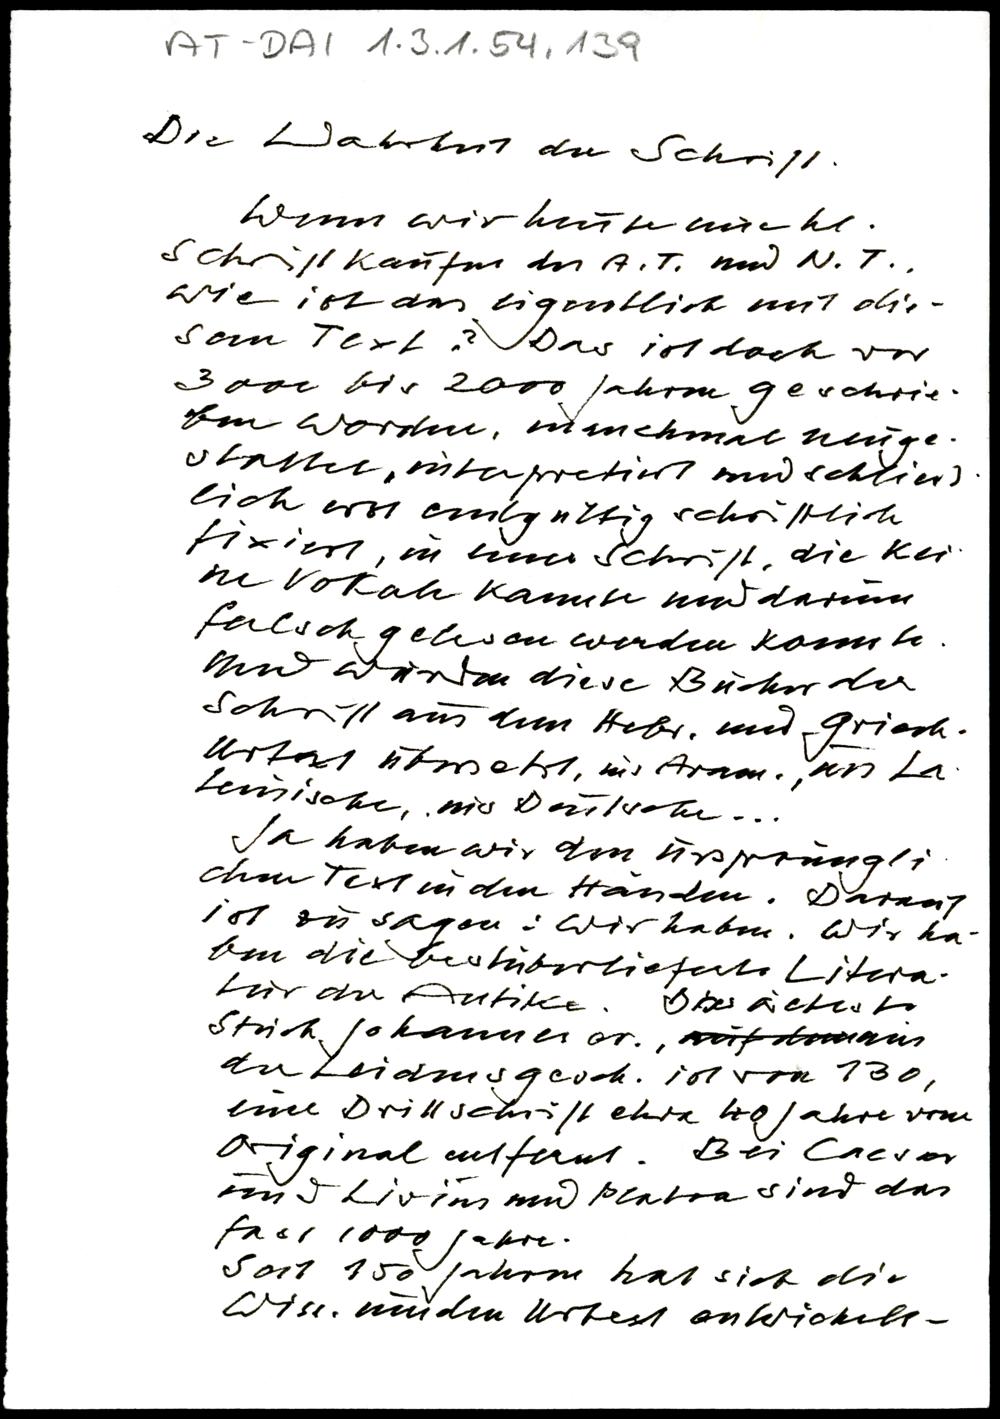 AT-DAI 1.3.1.54.139
Die Wahrheit der Schrift.
Wenn wir heute eine hl.
Schrift kaufen des A.T. und N.T.,
wie ist das eigentlich mit die-
sem Text? Das ist doch vor
3000 bis 2000 Jahren geschrie-
ben worden, manchmal neuge-
staltet, interpretiert und schließ-
lich erst endgültig schriftlich
fixiert, in einer Schrift, die kei-
ne Vokale kannte und darum
falsch gelesen werden konnte.
Und würden diese Bücher der
Schrift aus dem Hebr. und Griech.
Urtext übersetzt, ins Aram., ins La-
teinische, ins Deutsche...
Ja haben wir den ursprüngli
chen Text in den Händen. Darauf
ist zu sagen: Wir haben. Wir ha-
ben die bestüberlieferte Litera-
tur der Antike. Das älteste
Stück Johannes ev., auf dem aus
der Leidensgesch. ist von 130,
eine Drittschrift etwa 40 Jahre vom
Original entfernt. Bei Caesar
und Livius und Platon sind das
fast 1000 Jahre.
Seit 150 Jahren hat sich die
Wiss. um den Urtext entwickelt-